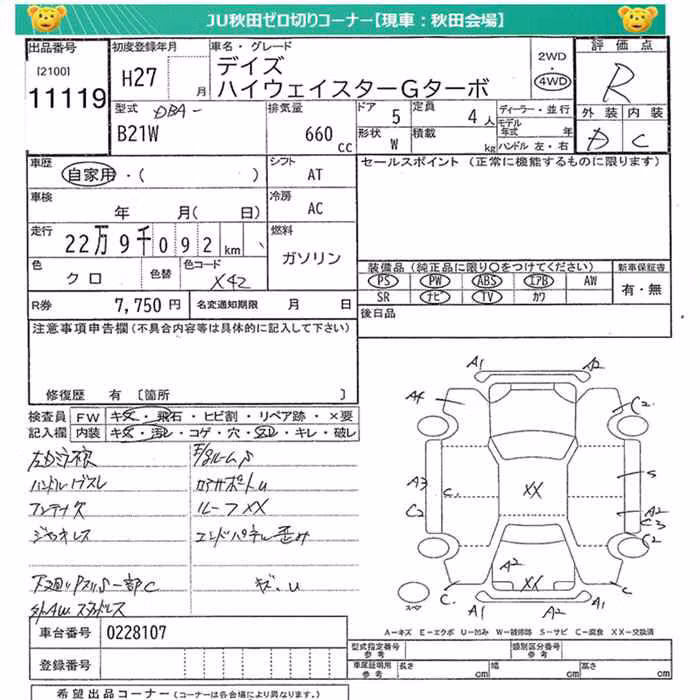 JU秋田ゼロ切りコーナー【現車：秋田会場】
出品番号
[2100]
11119
初度登録年月
H27
月
車名・グレード
デイズ
ハイウェイスターGターボ
2WD
・
4WD
評価点
R
外装
内装
D
C
型式
DBA-
B21W
排気量
660
cc
ドア
5
定員
4人
形状
W
積載
kg
ディーラー・並行
モデル年式
年
ハンドル 左・右
車歴
自家用・( )
シフト
AT
セールスポイント (正常に機能するものに限ります)
車検
年 月( 日)
冷房
AC
走行
22万9千092km
燃料
ガソリン
色
クロ
色替
色コード
X42
装備品 (純正品に限り○をつけてください)
新車保証書
PS PW ABS エアB AW
SR ナビ TV カワ
有・無
R券
7,750円
名変通知期限
月 日
後日品
注意事項申告欄(不具合内容等は具体的に記入して下さい)
修復歴 有 [箇所 ]
検査員
記入欄
FW
キズ・飛石・ヒビ割・リペア跡・×要
内装
キズ・汚レ・コゲ・穴・スレ・キレ・破レ
ハンドルスレ
アンテナ欠
ルーフXX
ジャッキレス
エンドパネル歪み
キズ.U
A1
A2
A4
C2
A3
C.
C2
XX
S
A2
C3
C2
A2
XX
C.
C
A1
A2
A1
スペア
A-キズ E-エクボ U-凹み W-補修跡 S-サビ C-腐食 XX-交換済
車台番号
0228107
登録番号
型式指定番号
参考
類別区分番号
参考
車庫証明用
参考
長さ
cm
幅
cm
高さ
cm
希望出品コーナー(コーナーは各会場により異なります。)